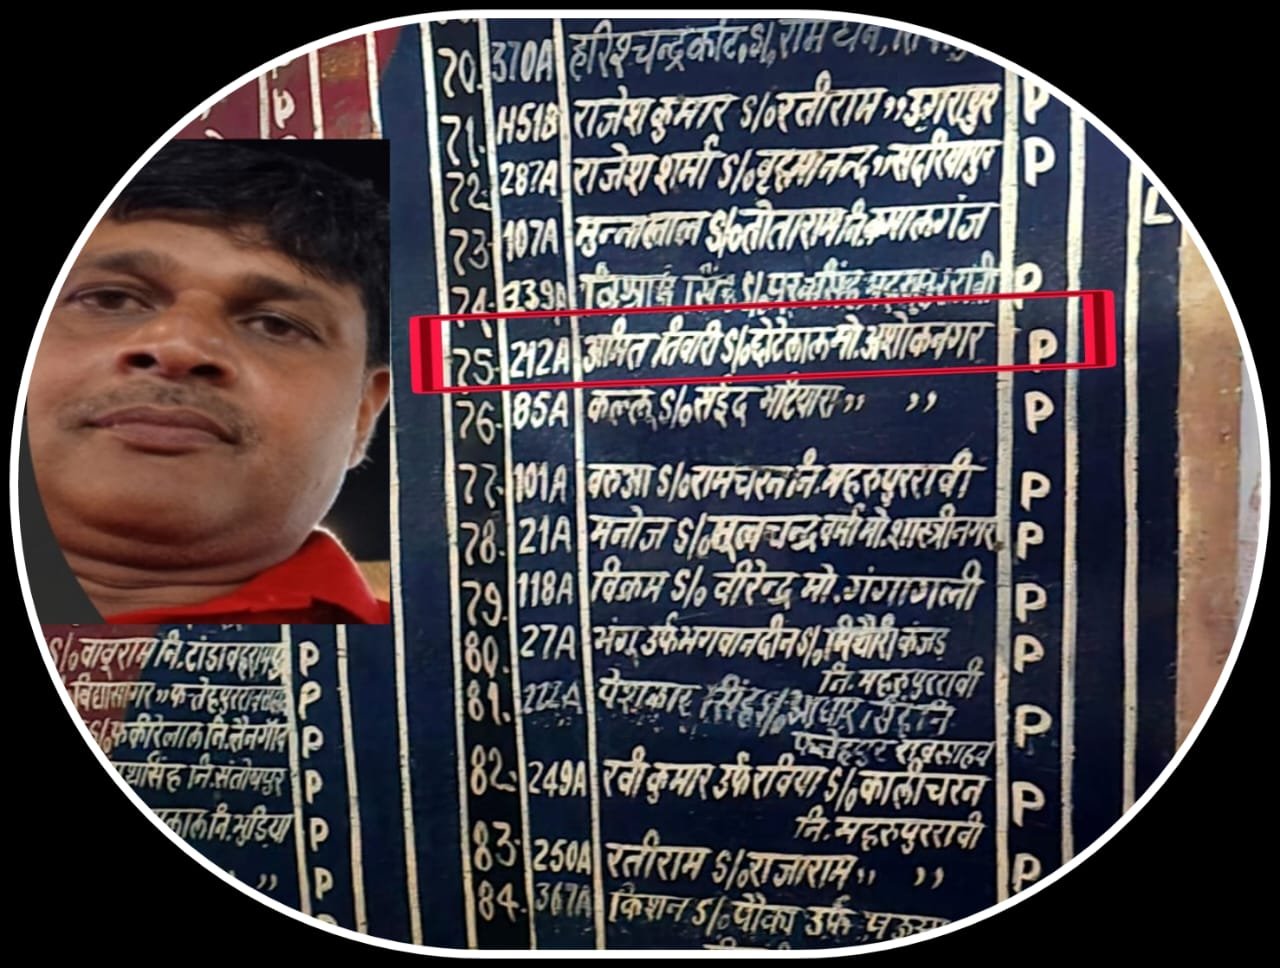 70. 370A हरिश्चन्द्र S/o राम
71. H51B राजेश कुमार S/o रतीराम ,, डुगरापुर P
72. 287A राजेश शर्मा S/o बृह्मानन्द ,, सदरियापुर P
73. 107A मुन्नालाल S/o तोताराम नि. कमालगंज
74. 339A सिंह S/o P
75. 212A अमित तिवारी S/o छोटेलाल मो. अशोकनगर P
76. 85A कल्लू S/o सईद भटियारा ,, ,, P
77. 101A बरुआ S/o रामचरन नि. महरुपुररावी P
78. 21A मनोज S/o मूलचन्द्र वर्मा मो. शास्त्रीनगर P
79. 118A विक्रम S/o वीरेन्द्र मो. गंगागली P
80. 27A भंगू उर्फ भगवानदीन S/o कंजड़ P
नि. महरुपुररावी
81. 222A पेशकार सिंह S/o आधार सिंह नि P
फतेहपुर रावसाहब
82. 249A रवी कुमार उर्फ रविया S/o कालीचरन P
नि. महरुपुररावी
83. 250A रतीराम S/o राजाराम ,, ,, P
84. 367A किशन S/o उर्फ
S/o बाबूराम नि. टांडा बहरामपुर P
विद्यासागर ,, फतेहपुर रावसाहब P
S/o फकीरेलाल नि. नैनगाँव P
नि. संतोषपुर P
लाल नि. भुड़िया P
,, P